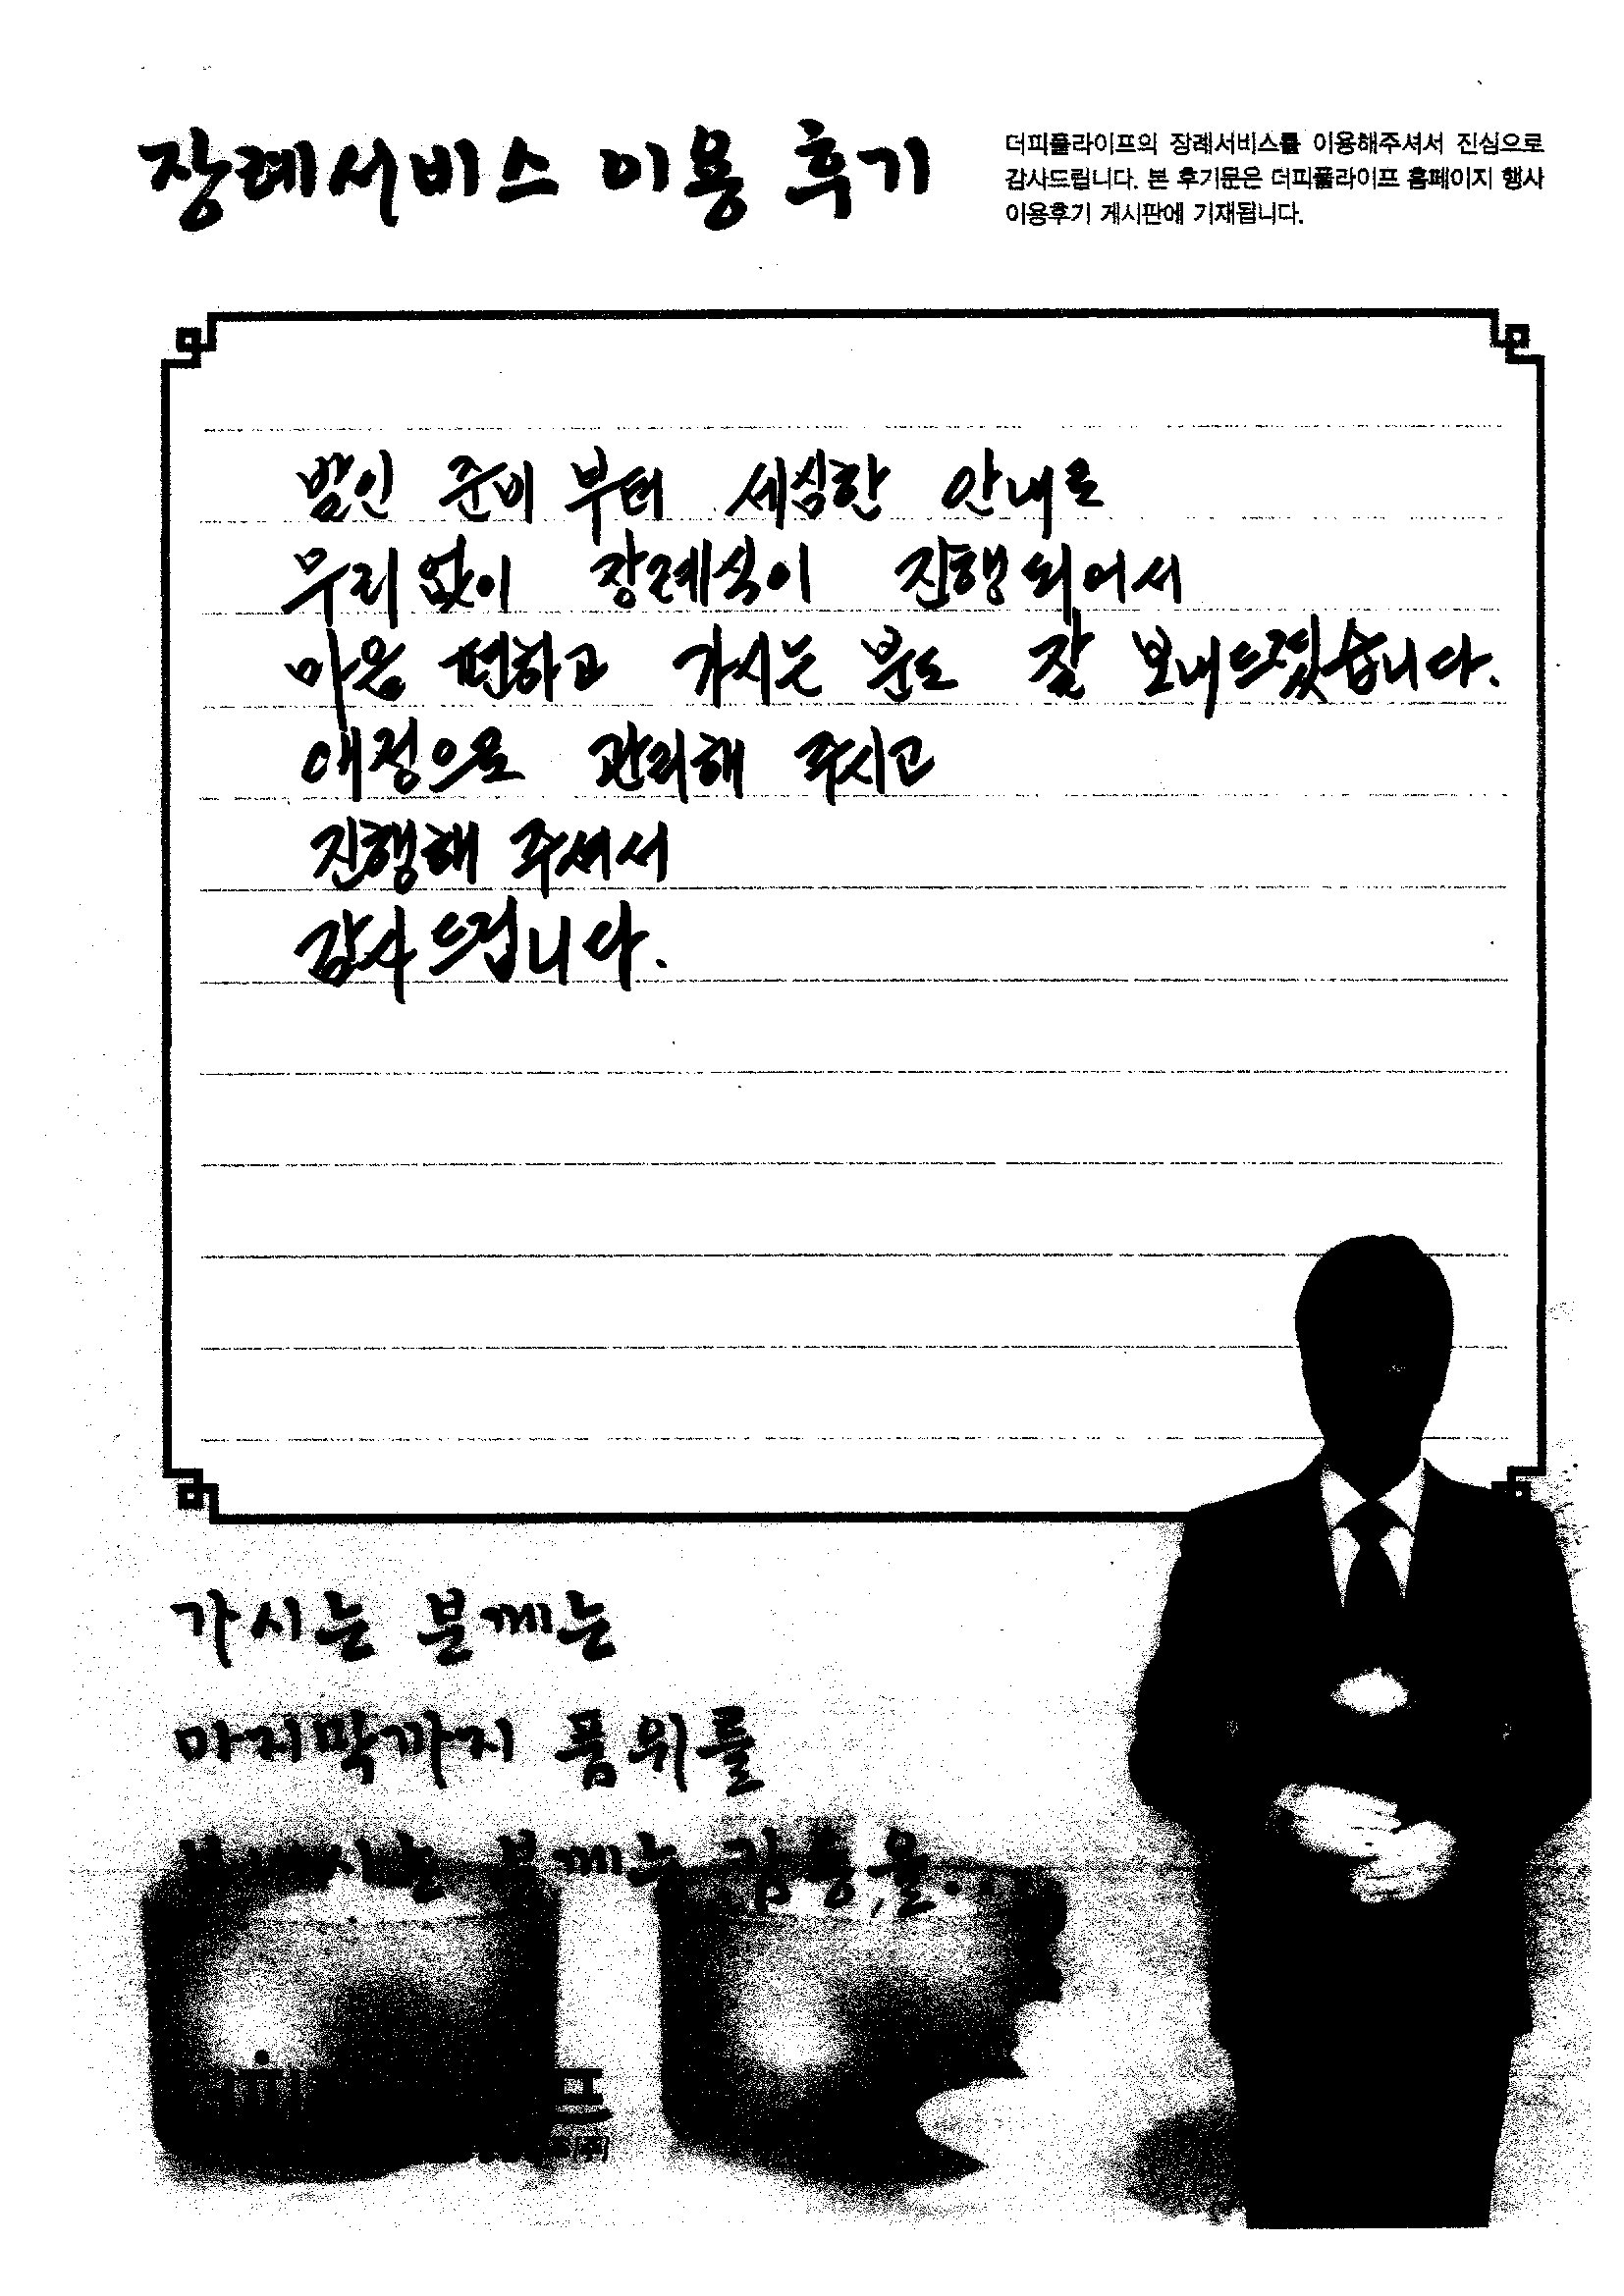 장례서비스 이용 후기
더피플라이프의 장례서비스를 이용해주셔서 진심으로
감사드립니다. 본 후기문은 더피플라이프 홈페이지 행사
이용후기 게시판에 기재됩니다.
발인 준비 부터 세심한 안내로
무리 없이 장례식이 진행 되어서
마음 편하고 가시는 분도 잘 보내드렸습니다.
애정으로 관리해 주시고
진행해 주셔서
감사 드립니다.
가시는 분께는
마지막까지 품위를
보내시는 분께는 감동을...